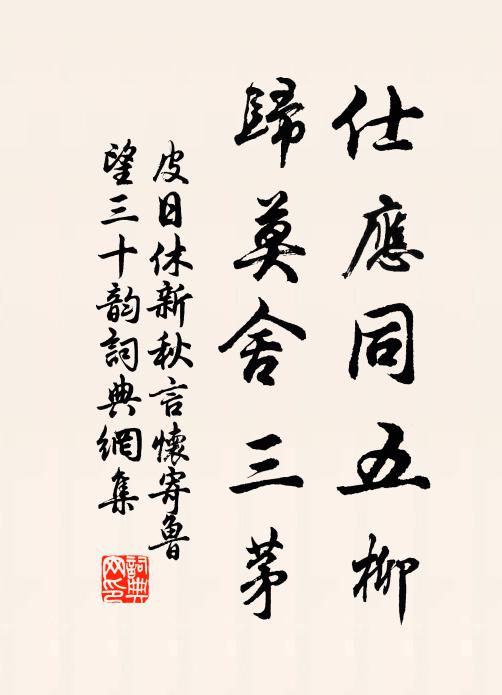 仕應同五柳
歸莫舍三茅
皮日休新秋言懷寄魯
望三十韵詞典網集
詞典
网印